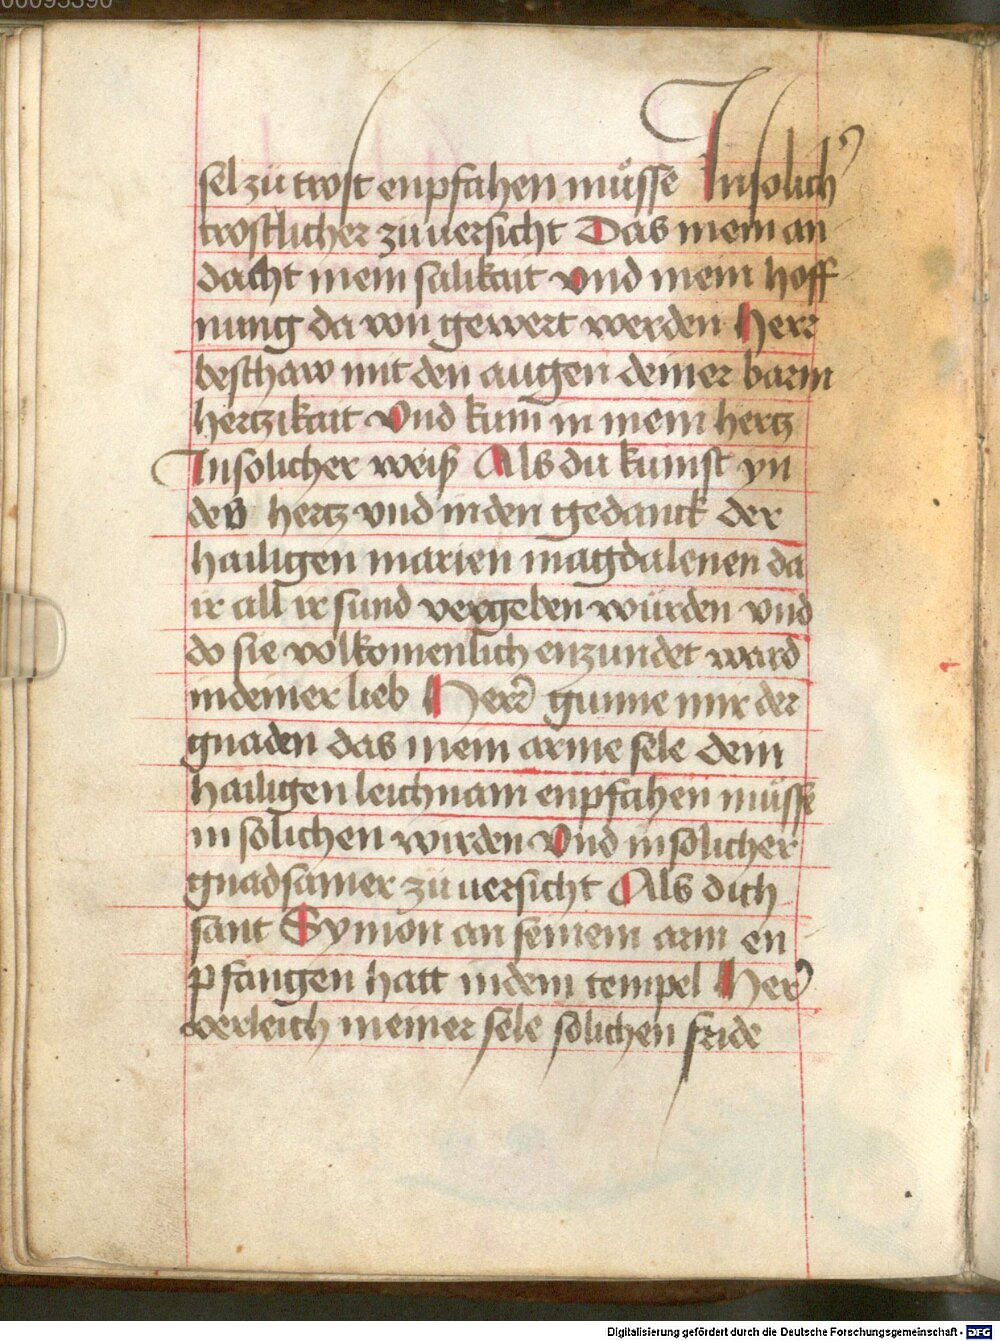 00095390
sel zů trost enpfahen můsse Jn solich᷉
trostlicher zuuersicht Das mein an
dacht mein salikait vnd mein hoff
nung da von gewert werden Herr
beschaw mit den augen deiner barm
hertzikait Vnd kum in mein hertz
Jnsolicher weiß Als du kumst yn
deß hertz vnd inden gedanck der
hailigen marien magdalenen da
ir all ir sund vergeben würden vnd
do sie volkomenlich enzundet ward
indeiner lieb Herr gunne mir der
gnaden das mein arme sele dein
hailigen leichnam enpfahen můsse
in solichen wirden Vnd insolicher
gnadsamer zů uersicht Als dich
sant Symon an seinem arm en
pfangen hatt indem tempel Her᷉
verleich meiner sele solichen fride
Digitalisierung gefördert durch die Deutsche Forschungsgemeinschaft - DFG